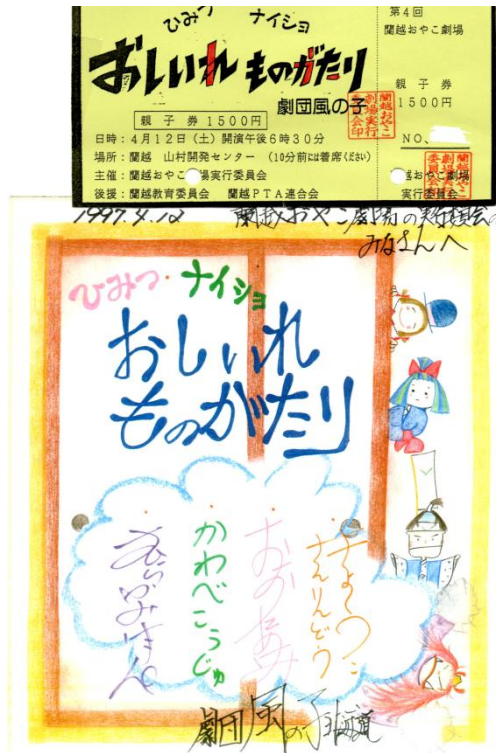 ひみつ ナイショ
おしいれ ものがたり
劇団風の子
親 子 券 1500円
日時：4月12日（土）開演午後6時30分
場所：蘭越 山村開発センター （10分前には着席ください）
主催：蘭越おやこ 場実行委員会
後援：蘭越教育委員会 蘭越PTA連合会
第4回
蘭越おやこ劇場
親 子 券
1500円
NO.
越おやこ劇場
実行委員会
1997.4.12 蘭越おやこ劇場の実行委員会の
みなさんへ
ひみつ・ナイショ
おしいれ
ものがたり
おのあみ
かわべこうじゅ
劇団風の子北海道